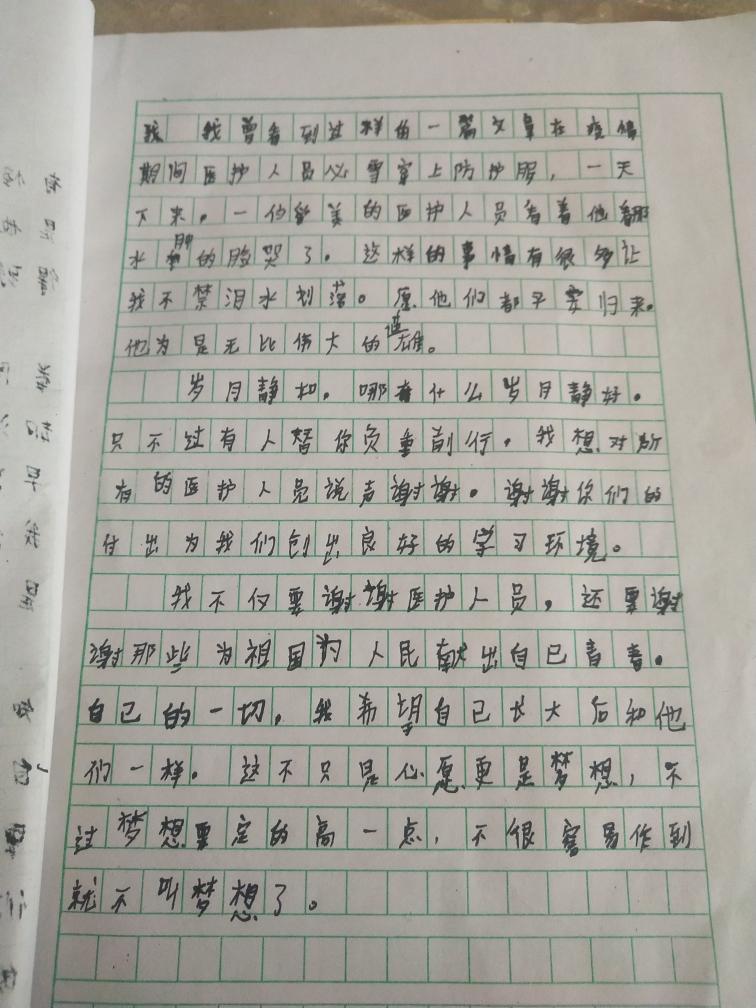 我曾看到过样的一篇文章在疫情
期间医护人员必需穿上防护服，一天
下来，一位爱美的医护人员看着他那
水肿的脸哭了。这样的事情有很多让
我不禁泪水划落。愿他们都平安归来。
他为是无比伟大的英雄。
岁月静和，哪有什么岁月静好。
只不过有人替你负重前行。我想对所
有的医护人员说声谢谢。谢谢你们的
付出为我们创出良好的学习环境。
我不仅要谢谢医护人员，还要谢
谢那些为祖国为人民献出自已青春。
自己的一切，我希望自己长大后和他
们一样。这不只是心愿更是梦想，不
过梦想要定的高一点，不很容易作到
就不叫梦想了。